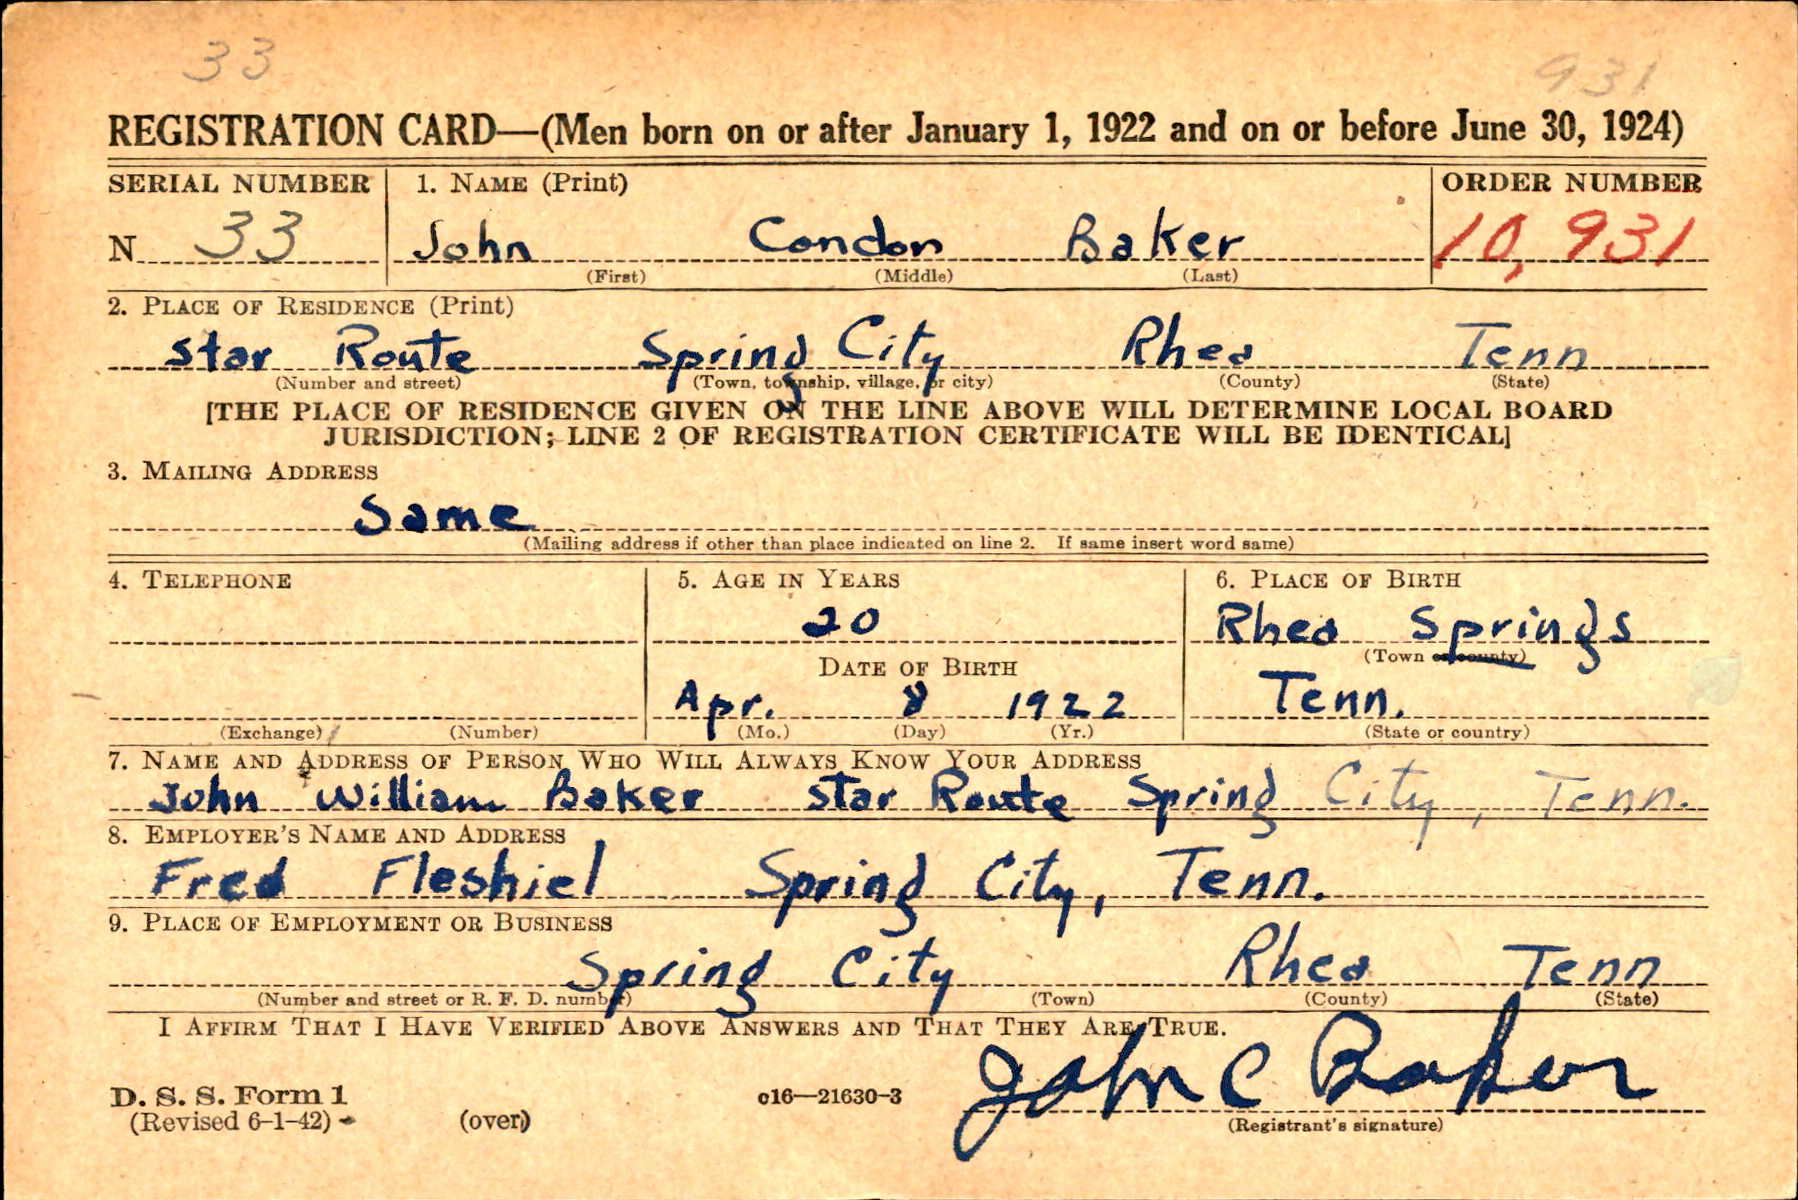 33 931
REGISTRATION CARD—(Men born on or after January 1, 1922 and on or before June 30, 1924)
SERIAL NUMBER 1. NAME (Print) ORDER NUMBER
N 33 John Condon Baker 10,931
(First) (Middle) (Last)
2. PLACE OF RESIDENCE (Print)
Star Route Spring City Rhea Tenn
(Number and street) (Town, township, village, or city) (County) (State)
[THE PLACE OF RESIDENCE GIVEN ON THE LINE ABOVE WILL DETERMINE LOCAL BOARD
JURISDICTION; LINE 2 OF REGISTRATION CERTIFICATE WILL BE IDENTICAL]
3. MAILING ADDRESS
Same
(Mailing address if other than place indicated on line 2. If same insert word same)
4. TELEPHONE 5. AGE IN YEARS 6. PLACE OF BIRTH
20 Rhea Springs
DATE OF BIRTH (Town or county)
Apr. 8 1922 Tenn.
(Exchange) (Number) (Mo.) (Day) (Yr.) (State or country)
7. NAME AND ADDRESS OF PERSON WHO WILL ALWAYS KNOW YOUR ADDRESS
John William Baker Star Route Spring City, Tenn.
8. EMPLOYER'S NAME AND ADDRESS
Fred Fleshiel Spring City, Tenn.
9. PLACE OF EMPLOYMENT OR BUSINESS
Spring City Rhea Tenn
(Number and street or R. F. D. number) (Town) (County) (State)
I AFFIRM THAT I HAVE VERIFIED ABOVE ANSWERS AND THAT THEY ARE TRUE.
John C Baker
D. S. S. Form 1 c16—21630-3
(Revised 6-1-42) (over) (Registrant's signature)